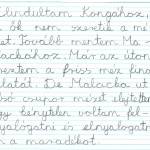 Elindultam Kengához,
ők nem szeretik a mé
et. Tovább mentem Ma-
lackához. Már az úton
reztem a friss méz fino
latát. De Malacka ut
lsó csupor mézét elejtette
gy kénytelen voltam fel-
yalázatni és elnyalogatn
m a maradékot.